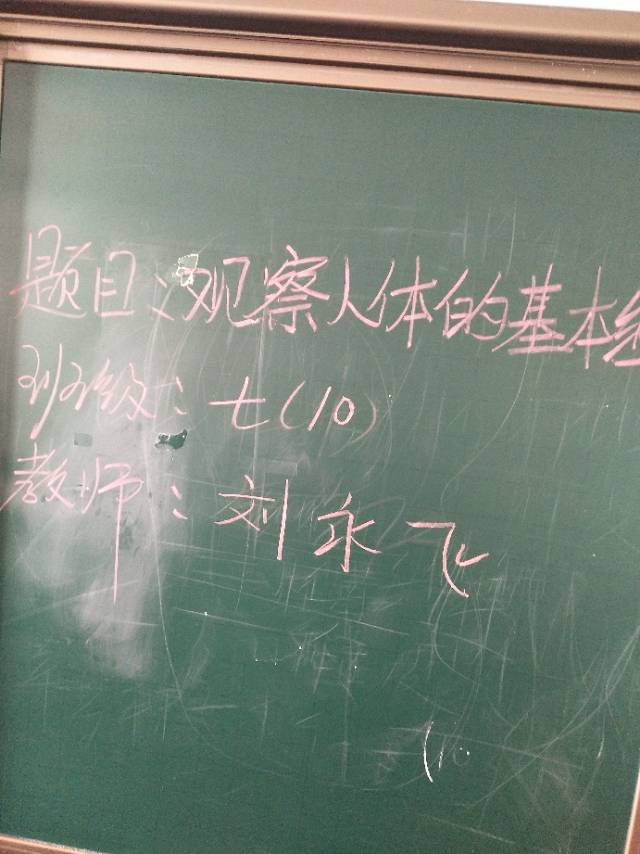 题目:观察人体的基本组
班级:七(10)
教师:刘永飞